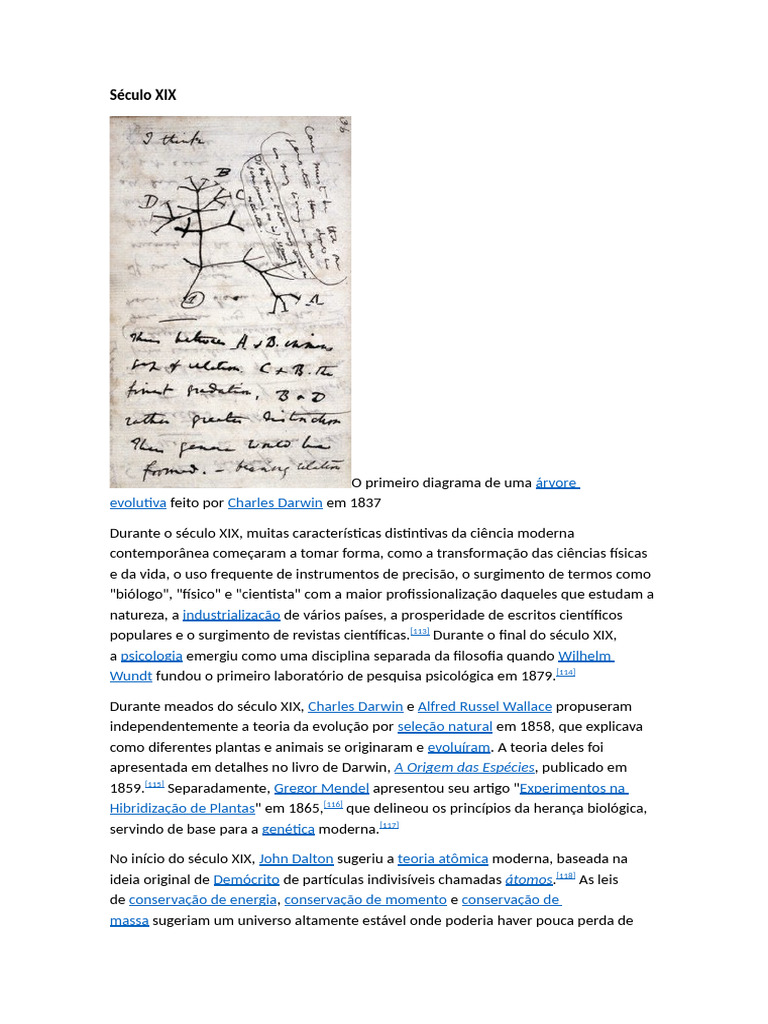 Século XIX
36
I think
B
D
C
A
1
Thus between A & B. immense
gap of relation. C & B. the
finest gradation, B & D
rather greater distinction
Thus genera would be
formed. — bearing relation
O primeiro diagrama de uma árvore
evolutiva feito por Charles Darwin em 1837
Durante o século XIX, muitas características distintivas da ciência moderna
contemporânea começaram a tomar forma, como a transformação das ciências físicas
e da vida, o uso frequente de instrumentos de precisão, o surgimento de termos como
"biólogo", "físico" e "cientista" com a maior profissionalização daqueles que estudam a
natureza, a industrialização de vários países, a prosperidade de escritos científicos
populares e o surgimento de revistas científicas.[113] Durante o final do século XIX,
a psicologia emergiu como uma disciplina separada da filosofia quando Wilhelm
Wundt fundou o primeiro laboratório de pesquisa psicológica em 1879.[114]
Durante meados do século XIX, Charles Darwin e Alfred Russel Wallace propuseram
independentemente a teoria da evolução por seleção natural em 1858, que explicava
como diferentes plantas e animais se originaram e evoluíram. A teoria deles foi
apresentada em detalhes no livro de Darwin, A Origem das Espécies, publicado em
1859.[115] Separadamente, Gregor Mendel apresentou seu artigo "Experimentos na
Hibridização de Plantas" em 1865,[116] que delineou os princípios da herança biológica,
servindo de base para a genética moderna.[117]
No início do século XIX, John Dalton sugeriu a teoria atômica moderna, baseada na
ideia original de Demócrito de partículas indivisíveis chamadas átomos.[118] As leis
de conservação de energia, conservação de momento e conservação de
massa sugeriam um universo altamente estável onde poderia haver pouca perda de